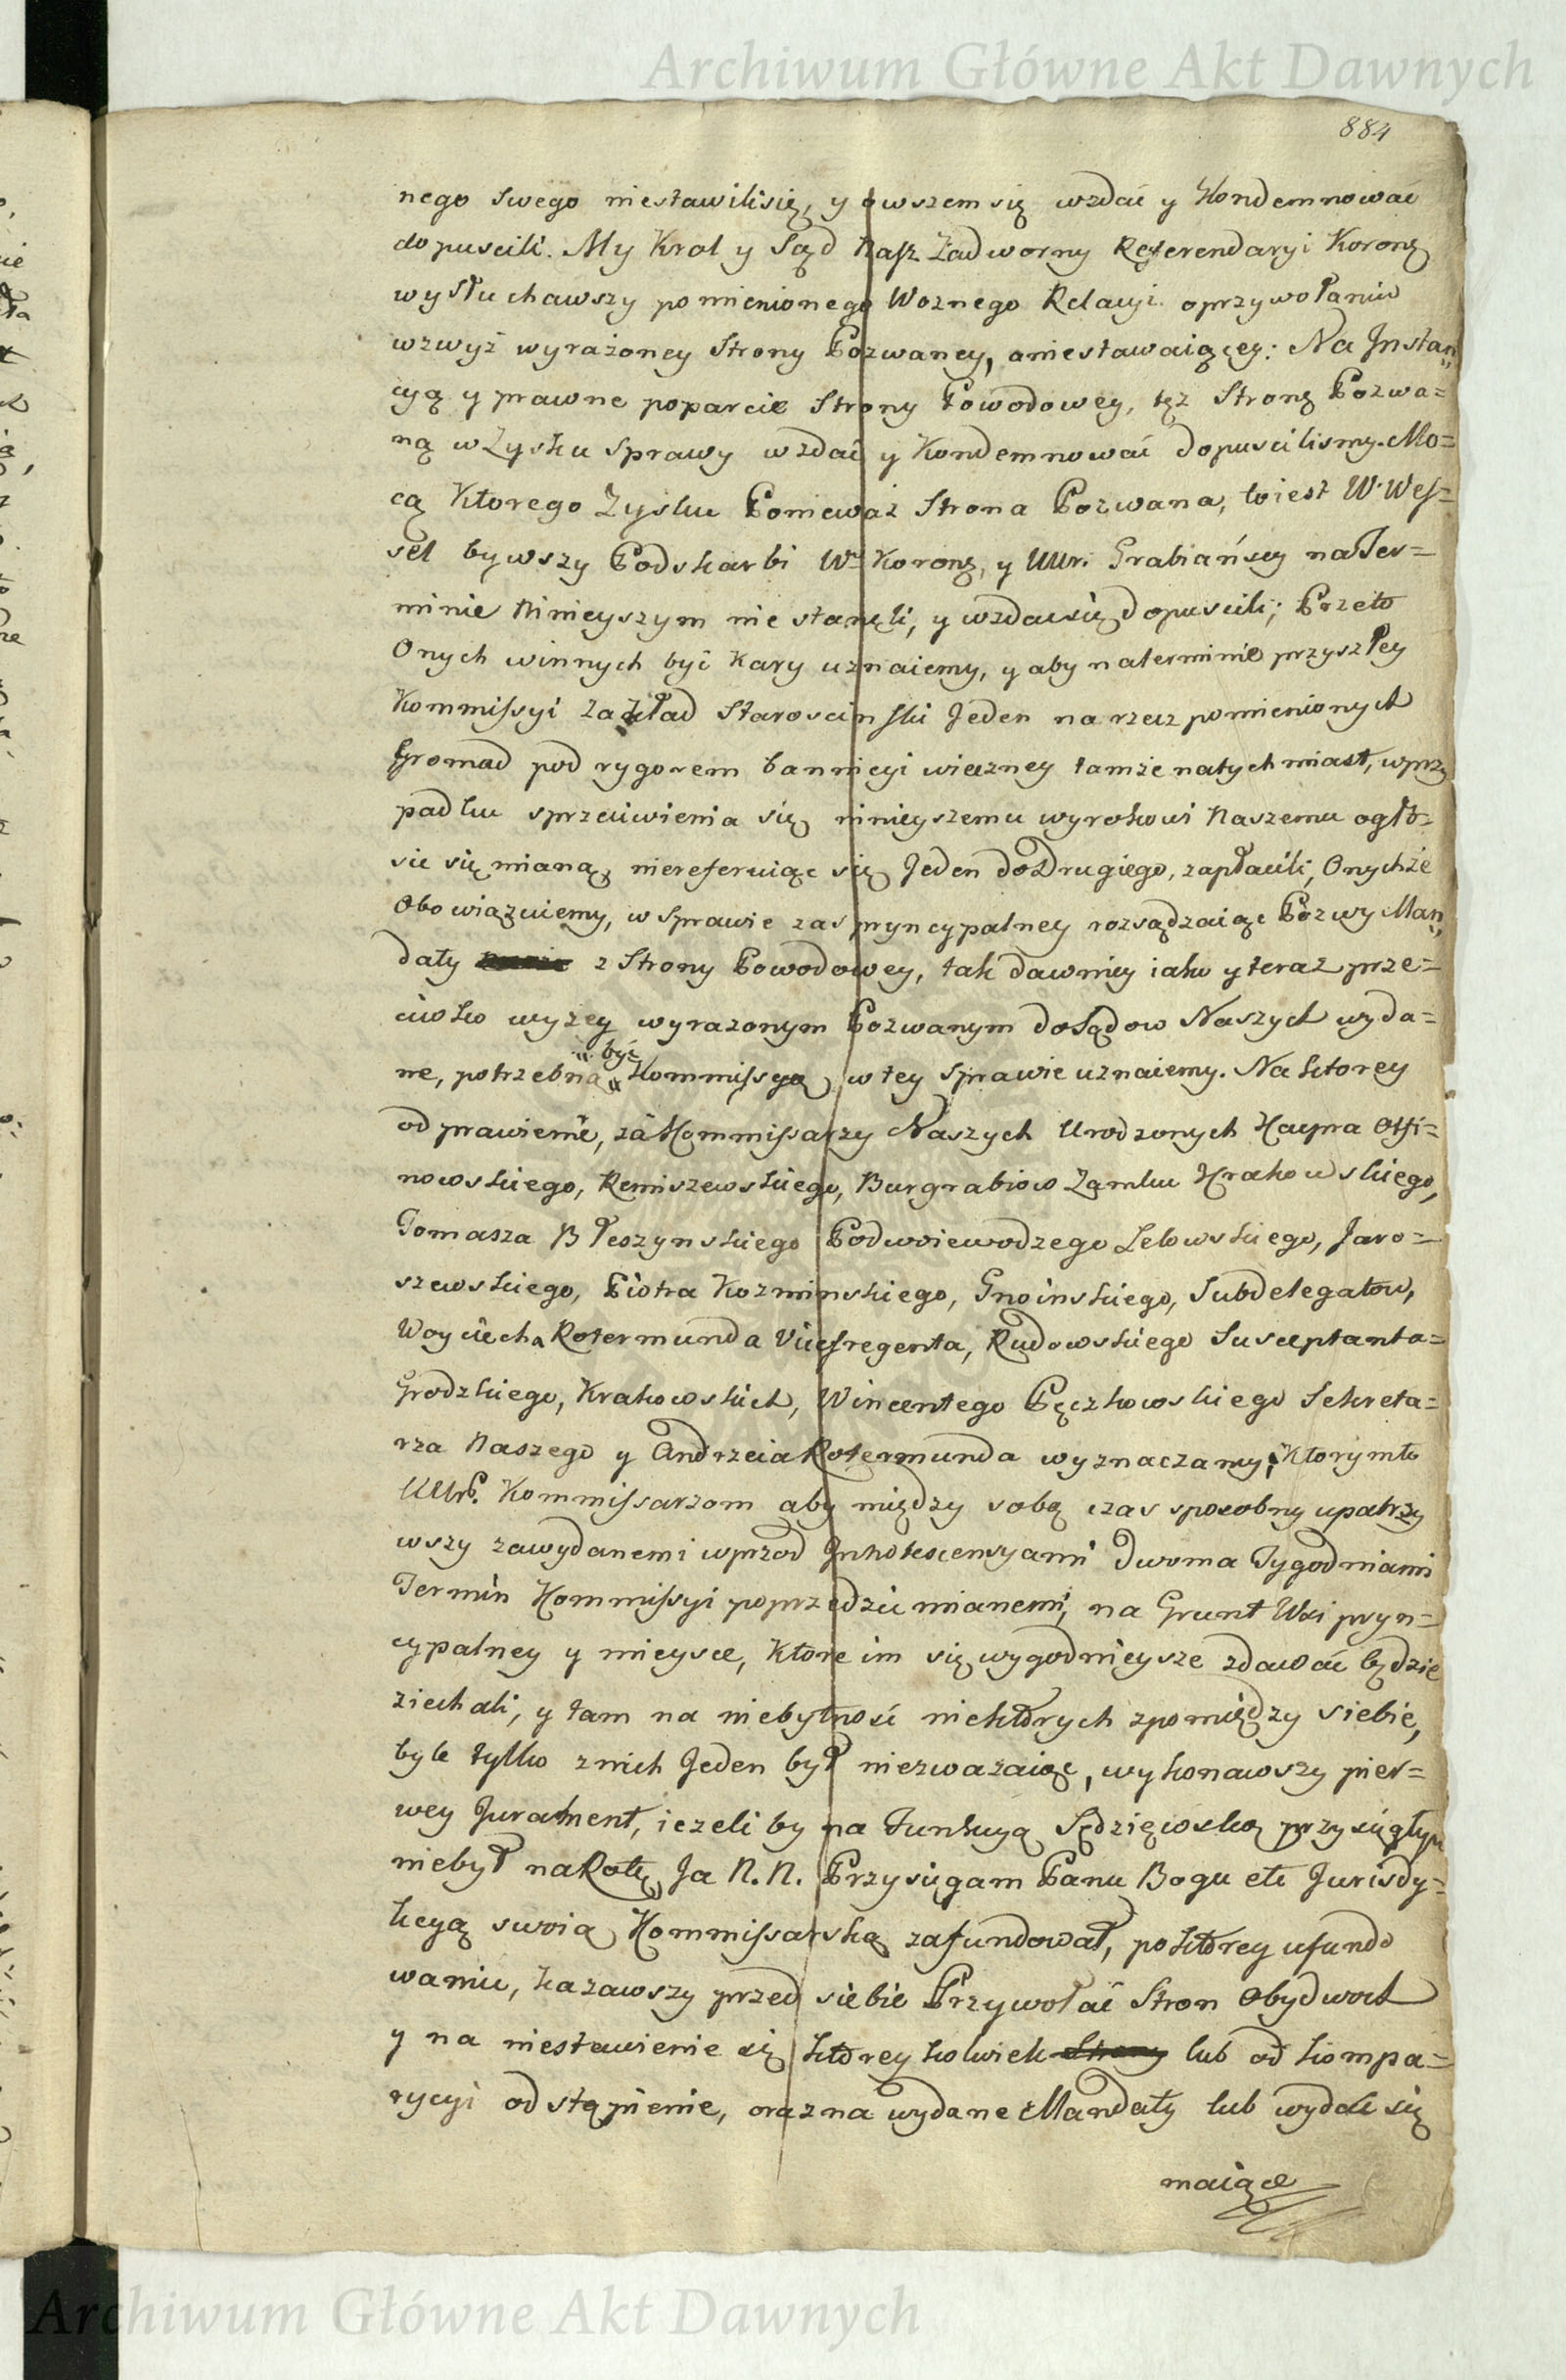 Archiwum Główne Akt Dawnych
884
nego swego niestawilisię, y owszem się wzdać y Kondemnować
dopuscili. My Krol y Sąd Nasz Zadworny Referendaryi Koronę
wysłuchawszy pomienionego Woznego Relacyi oprzywołaniu
wzwyż wyrażoney Strony Pozwaney, oniestawaiącey: Na Jnstan„
cyą y prawne poparcie Strony Powodowey, tęż Stronę Pozwa=
ną w Zysku Sprawy wzdać y Kondemnować dopuscilismy. Mo=
cą Ktorego Zysku Ponieważ Strona Pozwana, toiest W. Wes=
sel bywszy Podskarbi Wki Koronę, y UUr. Grabiańscy na Ter=
minie Ninieyszym nie stanęli, y wzdaćsię dopuscili; Przeto
Onych winnych być Kary uznaiemy, y aby naterminie przyszłey
Kommissyi Zakład Staroscinski Jeden na rzecz pomienionych
Gromad pod rygorem bannicyi wieczney tamże natychmiast, wprzy
padku sprzeciwienia się ninieyszemu wyrokowi Naszemu ogło=
sic się mianą, niereferuiąc się Jeden do Drugiego, zapłacili, Onychże
Obowiązuiemy, w Sprawie zas pryncypalney rozsądzaiąc Pozwy Man„
daty z Strony Powodowey, tak dawniey iako y teraz prze=
ciwko wyzey wyrazonym Pozwanym do Sądow Naszych wyda=
ne, potrzebną być Kommissyą w tey Sprawie uznaiemy. Na Ktorey
odprawienie, za Kommissarzy Naszych Urodzonych Kacpra Otfi=
nowskiego, Remiszewskiego, Burgrabiow Zamku Krakowskiego,
Tomasza Błeszynskiego Podwoiewodzego Lelowskiego, Jaro=
szewskiego, Piotra Kozminskiego, Gnoinskiego, Subdelegatow,
Woyciecha Rotermunda Vicesregenta, Rudowskiego Susceptanta=
Grodzkiego, Krakowskich, Wincentego Pęczkowskiego Sekreta=
rza Naszego y Andrzeia Rotermunda wyznaczamy; Ktorymto
UUrb. Kommissarzom aby między sobą czas sposobny upatrzy
wszy zawydanemi wprzod Jnnotescencyami dwoma Tygodniami
Termin Kommissyi poprzedzić mianemi, na Grunt Wsi pryn=
cypalney y mieysce, Ktore im się wygodnieysze zdawać będzie
ziechali, y tam na niebytność niektorych zpomiędzy siebie,
byle tylko znich Jeden był niezwazaiąc, wykonawszy pier=
wey Jurament, iezeliby na Funkcyą Sędziowską przysięgłym
niebył na Rotę, Ja N. N. Przysięgam Panu Bogu etc Jurisdy=
kcyą swoią Kommissarską zafundował, poktorey ufundo
waniu, kazawszy przed siebie Przywołać Stron Obydwoch
y na niestawienie się ktoreykolwiek Strony lub od kompa=
rycyi odstąpienie, oraz na wydane Mandaty lub wydać się
maiące
Archiwum Główne Akt Dawnych